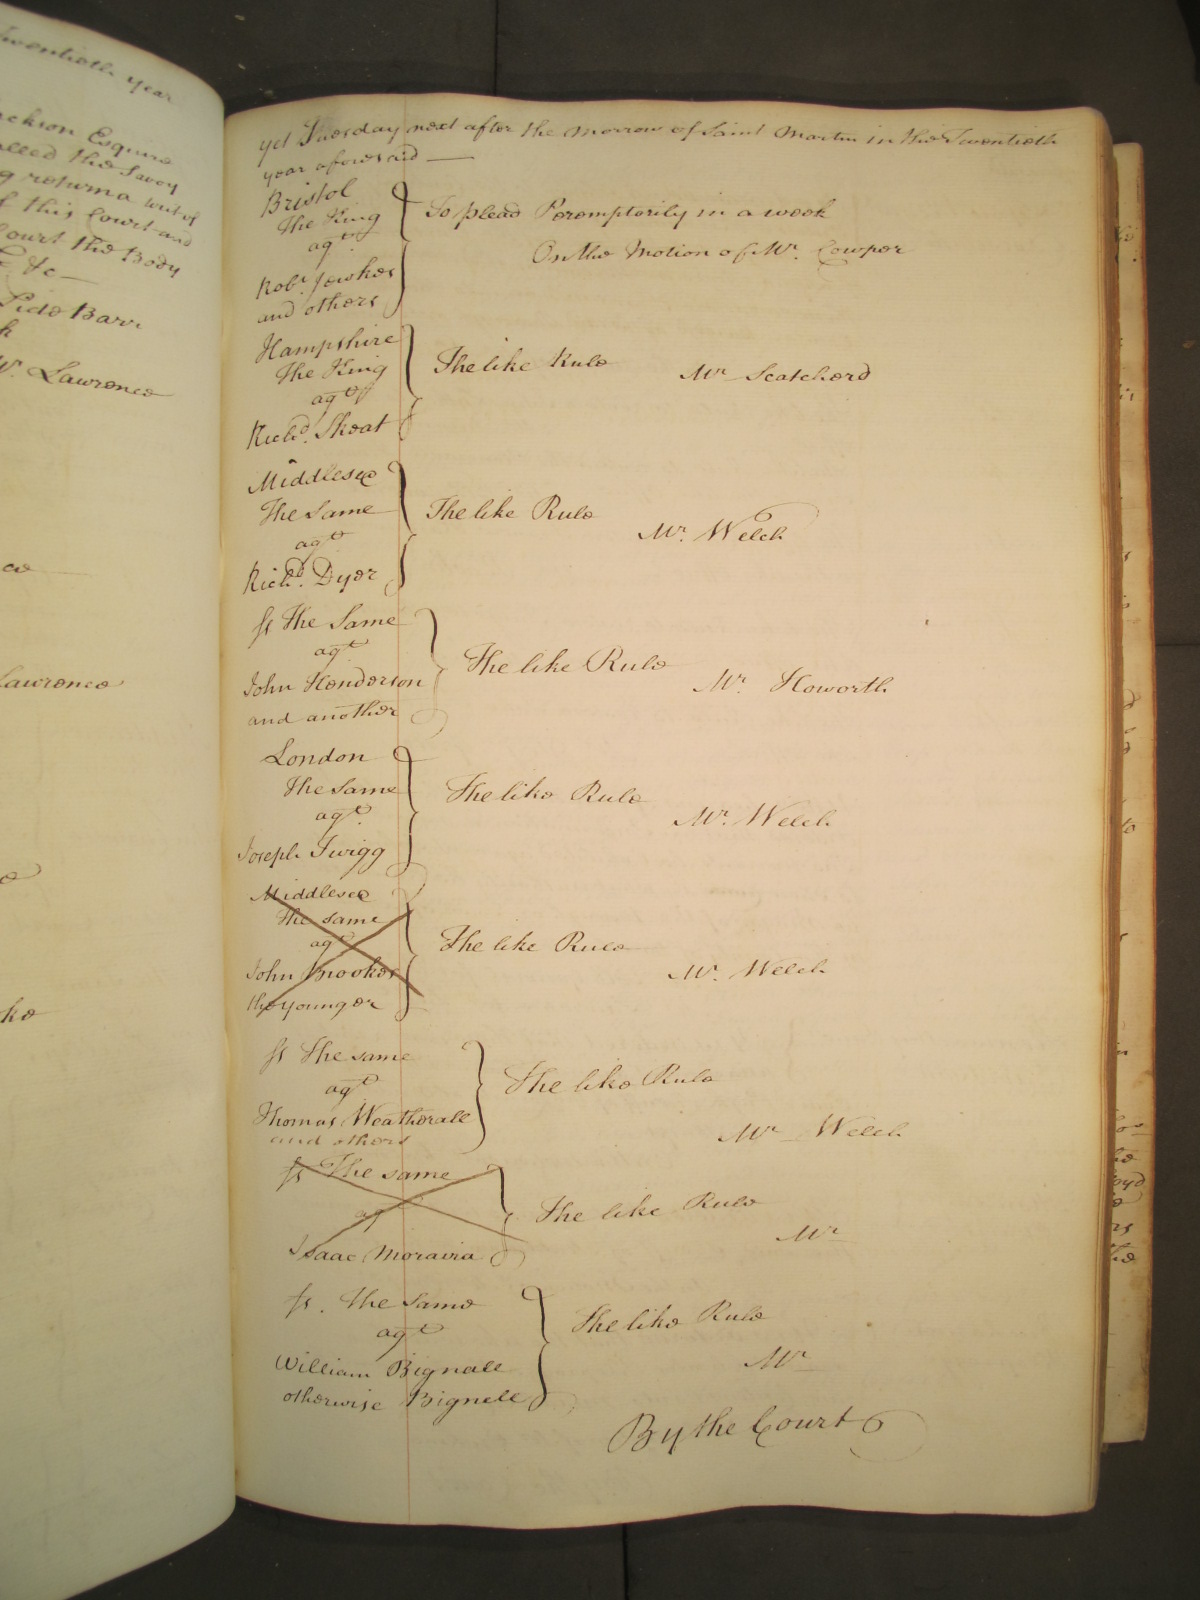 Twentieth year
ackson Esquire
alled the Savoy
g returna writ of
f this Court and
Court the Body
&c &c
Side Barr
k
W. Lawrence
Lawrence
yet Tuesday next after the Morrow of Saint Martin in the Twentieth
year aforesaid
Bristol
The King
agt.
Robt. Jewkes
and others
To plead Peremptorily in a week
On the Motion of Mr. Cowper
Hampshire
The King
agt
Richd. Skeat
The like Rule
Mr Scatcherd
Middlesex
The Same
agt
Richd. Dyer
The like Rule
Mr. Welch
ss The Same
agt
John Henderson
and another
The like Rule
Mr. Howorth
London
The Same
agt.
Joseph Twigg
The like Rule
Mr. Welch
Middlesex
The same
agt
John Brookes
the younger
The like Rule
Mr. Welch
ss The same
agt
Thomas Weatherall
and others
The like Rule
Mr Welch
ss The same
agt
Isaac Moravia
The like Rule
Mr
ss. The same
agt
William Bignall
otherwise Bignell
The like Rule
Mr
By the Court